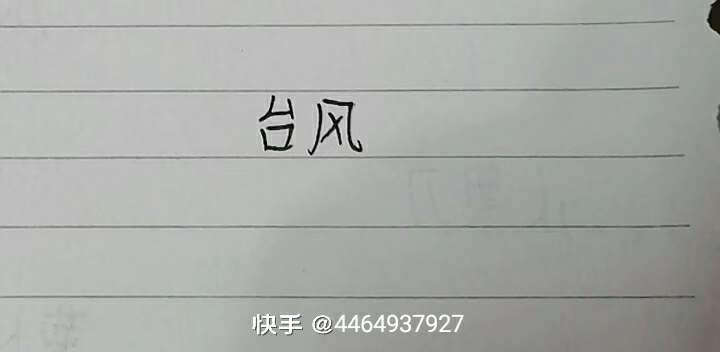 台风
快手 @4464937927